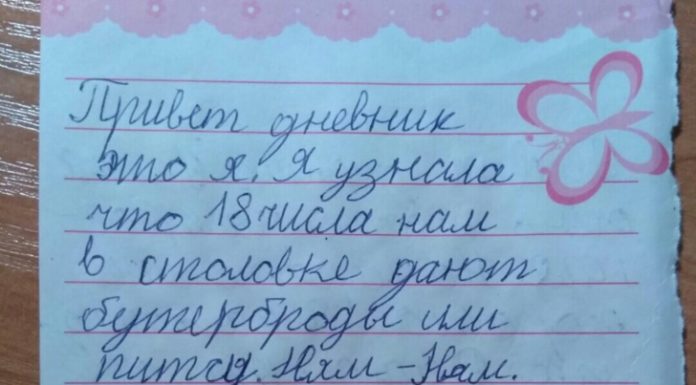 Привет дневник
это я. Я узнала
что 18 числа нам
в столовке дают
бутерброды или
питсы. Ням-Ням.